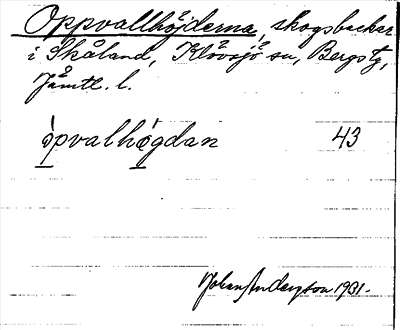 Oppvallhöjderna, skogsbackar
i Skåland, Klövsjö sn, Bergs tg,
Jämtl. l.
òpvalhø̀gdan 43
Johan Anderzson 1931.